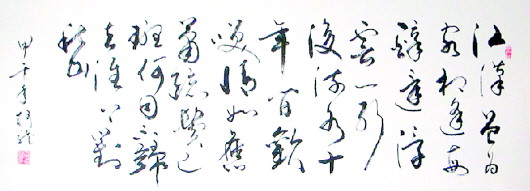 江漢曾為
客相逢每
醉還浮
雲一別
後流水十
年間歡
笑情如舊
蕭疏鬢已
斑何因不歸
去淮上對
秋山
甲午年